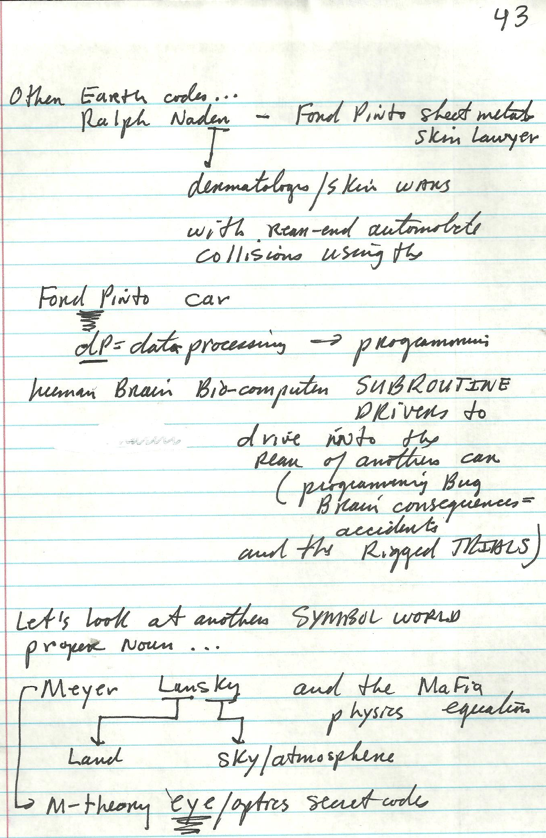 43
Other Earth codes...
Ralph Nader - Ford Pinto sheet metal
skin lawyer
dermatologis/skin wars
with rear-end automobile
collisions using the
Ford Pinto car
dP = data processing → programmin
human Brain Bio-computer SUBROUTINE
DRIVERS to
drive into the
rear of another car
(programming Bug
Brain consequences =
accidents
and the Rigged TRIALS)
Let's look at another SYMBOL WORLD
proper Noun ...
Meyer Lansky and the Mafia
physics equation
Land sky/atmosphere
M-theory eye/optics secret code